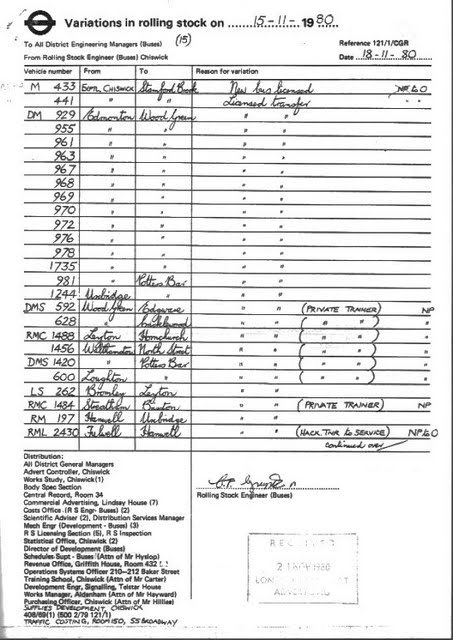 Variations in rolling stock on 15-11- 1980
(15)
To All District Engineering Managers (Buses)
Reference 121/1/CGR
From Rolling Stock Engineer (Buses) Chiswick
Date 18-11-80
Vehicle number From To Reason for variation
M 433 Chiswick Stamford Brook New bus licensed
441 " " Licensed transfer " "
DM 929 Edmonton Wood Green " "
955 " " " "
961 " " " "
963 " " " "
967 " " " "
968 " " " "
969 " " " "
970 " " " "
972 " " " "
976 " " " "
978 " " " "
1735 " " " "
981 " Potters Bar " "
1244 Uxbridge " " "
DMS 592 Wood Green Edgware " " (PRIVATE TRAINER) NP
628 " Cricklewood " " ( " " ) "
RMC 1488 Leyton Hornchurch " " ( " " ) "
1456 Walthamstow North Street " " ( " " ) "
DMS 1420 " Potters Bar " " ( " " ) "
600 Loughton " " " ( " " ) "
LS 262 Bromley Leyton " "
RMC 1484 Streatham Brixton " " (PRIVATE TRAINER) NP
RM 197 Hanwell Uxbridge " "
RML 2430 Fulwell Hanwell " " TO SERVICE)
continued over
Distribution:
All District General Managers
Advert Controller, Chiswick
Works Study, Chiswick(1)
Body Spec Section
Central Record, Room 34
Commercial Advertising, Lindsay House (7)
Costs Office (R S Engr- Buses) (2)
Scientific Adviser (2), Distribution Services Manager
Mech Engr (Development - Buses) (3)
R S Licensing Section (5), R S Inspection
Statistical Office, Chiswick (2)
Director of Development (Buses)
Schedules Supt - Buses (Attn of Mr Hyslop)
Revenue Office, Griffith House, Room 432
Operations Systems Officer 210-212 Baker Street
Training School, Chiswick (Attn of Mr Carter)
Development Engr, Signalling, Telster House
Works Manager, Aldenham (Attn of Mr Hayward)
Purchasing Officer, Chiswick (Attn of Mr Hillies)
SUPPLIES DEVELOPMENT, CHISWICK
408/69(1) (500 2/79 121/1)
TRAFFIC COSTING, ROOM 150, 55 BROADWAY
Rolling Stock Engineer (Buses)
RECEIVED
1980